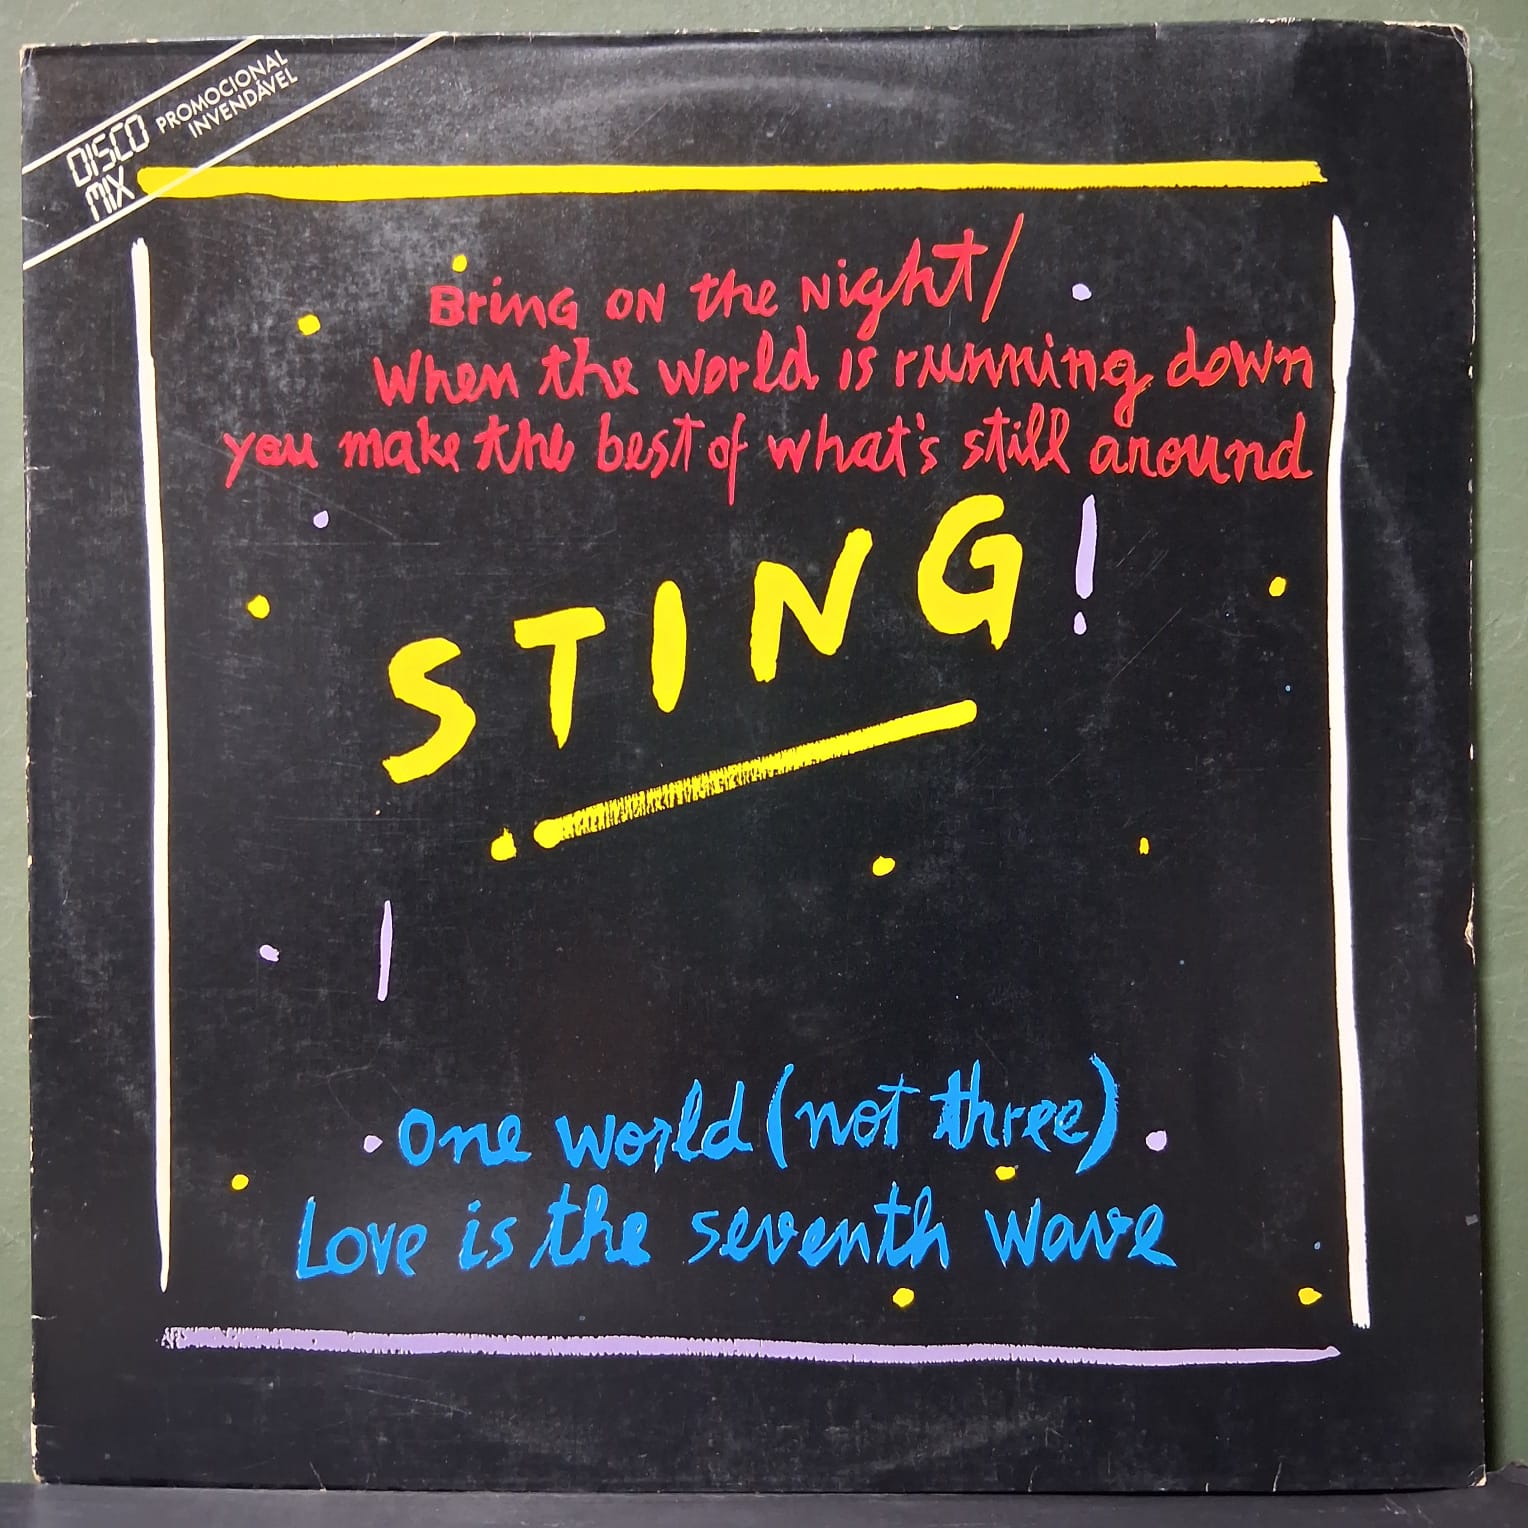 DISCO MIX
PROMOCIONAL
INVENDÁVEL
Bring on the Night/
When the world is running down
you make the best of what's still around
STING!
One world (not three)
Love is the seventh wave